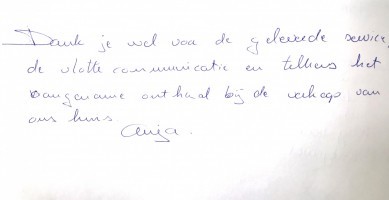 Dank je wel voor de geleverde service,
de vlotte communicatie en telkens het
aangename onthaal bij de verkoop van
ons huis
Anja.